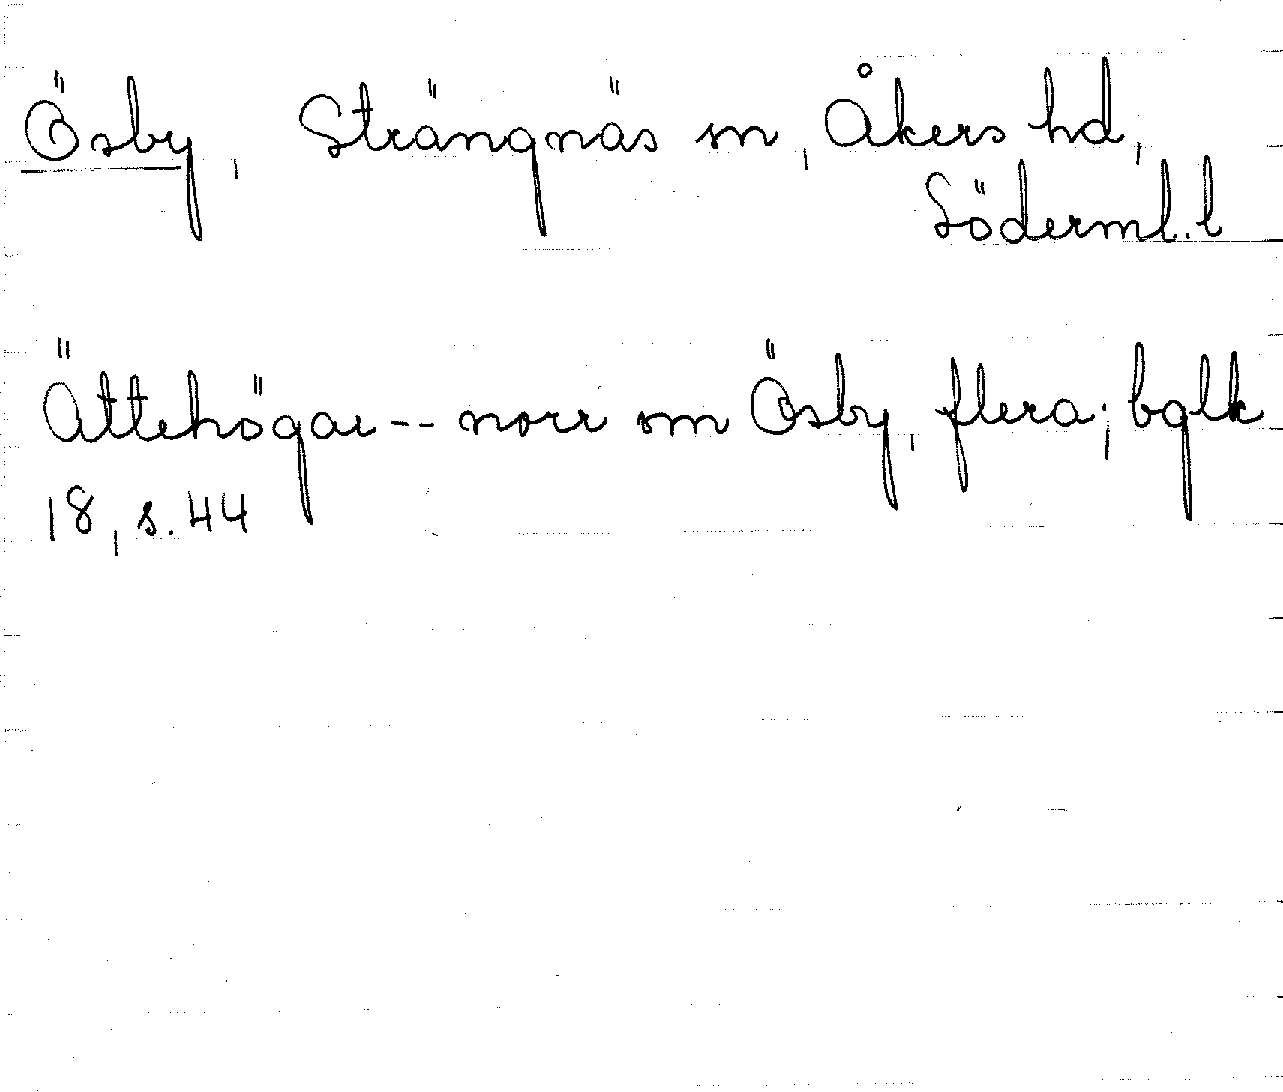 Ösby, Strängnäs sn, Åkers hd,
Söderml. l
Ättehögar -- norr om Ösby, flera; bglk
18, s. 44